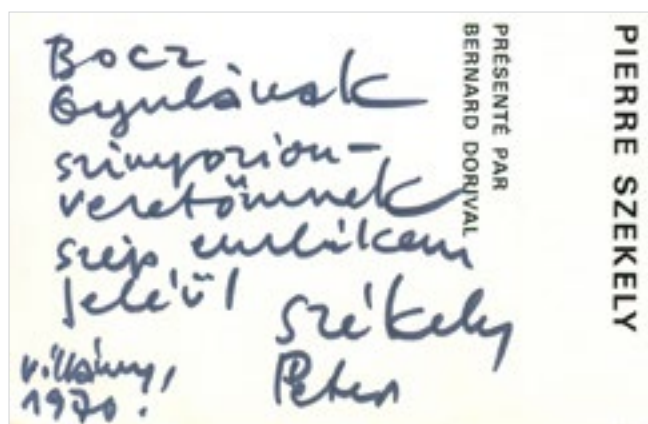 Bocz
Gyulának
szimpozion-
vezetőmnek
szép emlékem
jeléül
Székely
Péter
Villány,
1970.
PRÉSENTÉ PAR
BERNARD DORIVAL
PIERRE SZEKELY